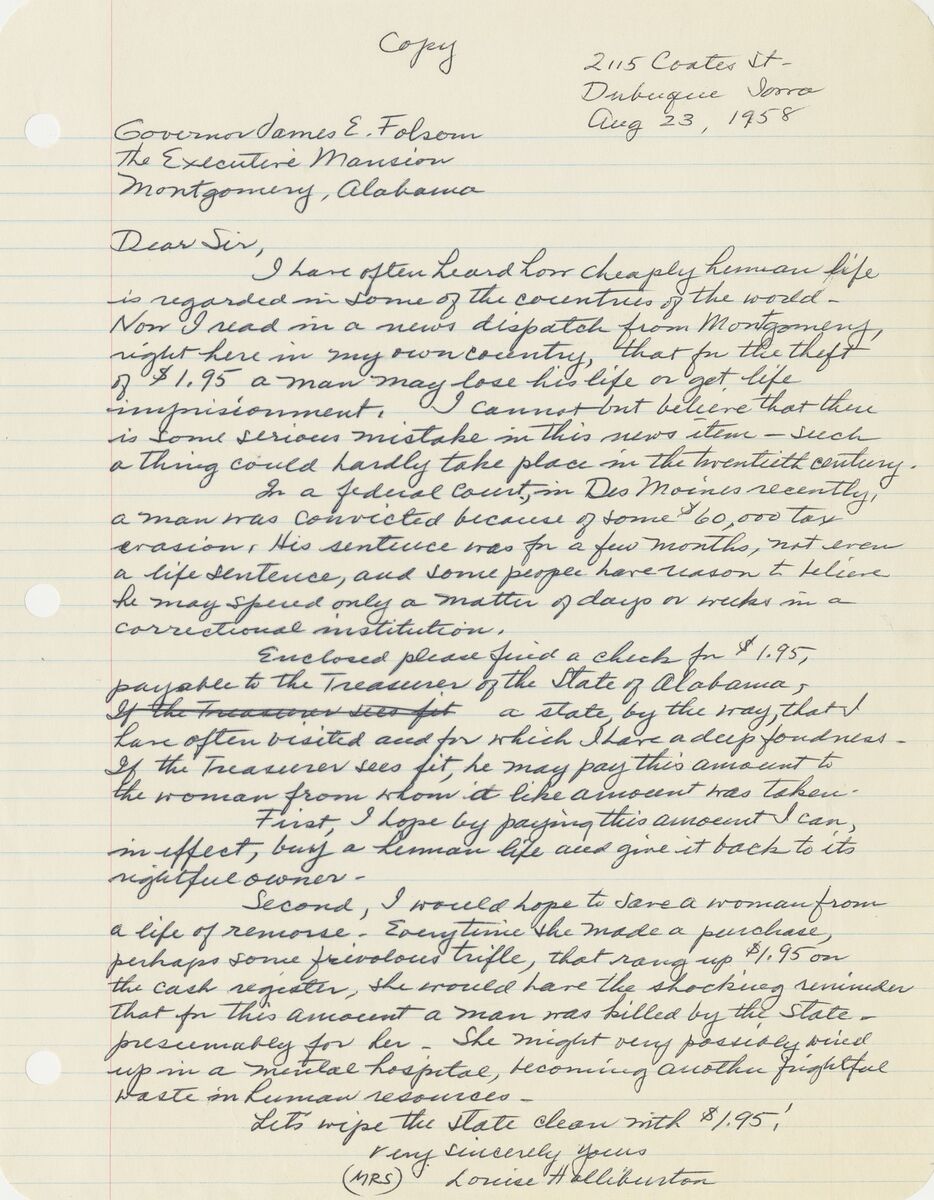 Copy
2115 Coates St-
Dubuque Iowa
Aug 23, 1958
Governor James E. Folsom
The Executive Mansion
Montgomery, Alabama
Dear Sir,
I have often heard how cheaply human life
is regarded in some of the countries of the world-
Now I read in a news dispatch from Montgomery,
right here in my own country, that for the theft
of $1.95 a man may lose his life or get life
imprisionment. I cannot but believe that there
is some serious mistake in this news item - such
a thing could hardly take place in the twentieth century.
In a federal court, in Des Moines recently,
a man was convicted because of some $60,000 tax
evasion. His sentence was for a few months, not even
a life sentence, and some people have reason to believe
he may spend only a matter of days or weeks in a
correctional institution.
Enclosed please find a check for $1.95,
payable to the Treasurer of the State of Alabama,
If the Treasurer sees fit a state, by the way, that I
have often visited and for which I have a deep fondness-
If the Treasurer sees fit, he may pay this amount to
the woman from whom a like amount was taken.
First, I hope by paying this amount I can,
in effect, buy a human life and give it back to its
rightful owner-
Second, I would hope to save a woman from
a life of remorse- Everytime she made a purchase,
perhaps some frivolous trifle, that rang up $1.95 on
the cash register, she would have the shocking reminder
that for this amount a man was killed by the State-
presumably for her- She might very possibly wind
up in a mental hospital, becoming another frightful
waste in human resources-
Let's wipe the slate clean with $1.95!
Very sincerely yours
(MRS) Louise Halliburton